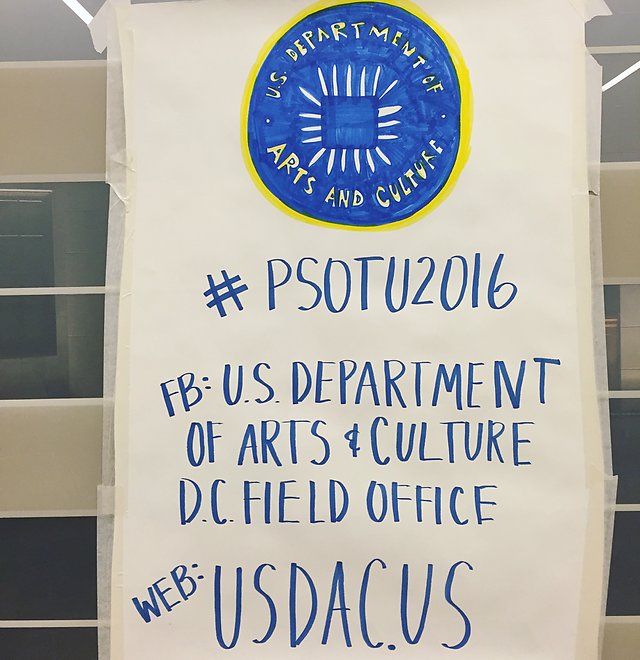 U.S. DEPARTMENT OF
ARTS AND CULTURE
# PSOTU2016
FB: U.S. DEPARTMENT
OF ARTS & CULTURE
D.C. FIELD OFFICE
WEB: USDAC.US